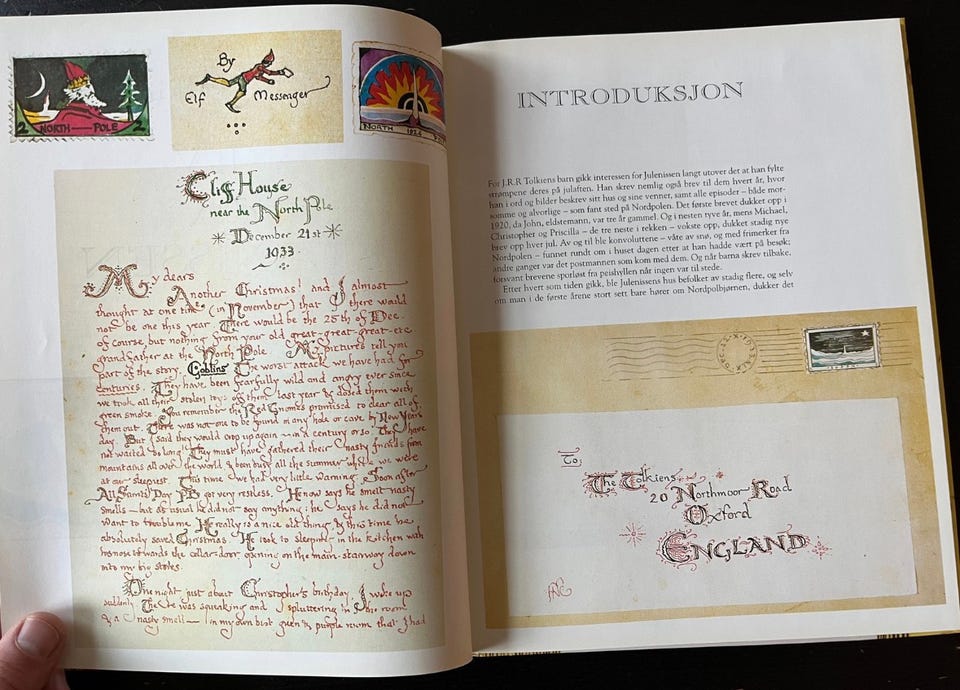 2 NORTH — POLE 2
By
Elf Messenger
NORTH 1926
Cliff House
near the North Pole
December 21st
1933
My dears
Another Christmas! and I almost
thought at one time (in November) that there would
not be one this year. There would be the 25th of Dec.
of course, but nothing from your old great-great-great-etc.
grandfather at the North Pole. My pictures tell you
part of the story. Goblins. The worst attack we have had for
centuries. They have been fearfully wild and angry ever since
we took all their stolen toys off them last year & dosed them with
green smoke. You remember the Red Gnomes promised to clear all of
them out. There was not one to be found in any hole or cave by New Years
day. But I said they would crop up again — in a century or so. They have
not waited so long! They must have gathered their nasty friends from
mountains all over the world, & been busy all the summer while we were
at our sleepiest. This time we had very little warning. Soon after
All Saints' Day PB got very restless. He now says he smelt nasty
smells — but as usual he did not say anything: he says he did not
want to trouble me. He really is a nice old thing, & this time he
absolutely saved Christmas. He took to sleeping in the kitchen with
his nose towards the cellar-door, opening on the main-stairway down
into my big stores.
One night just about Christopher's birthday, I woke up
suddenly. There was squeaking and spluttering in the room
& a nasty smell — in my own best green & purple room that I had
INTRODUKSJON
For J.R.R Tolkiens barn gikk interessen for Julenissen langt utover det at han fylte
strømpene deres på julaften. Han skrev nemlig også brev til dem hvert år, hvor
han i ord og bilder beskrev sitt hus og sine venner, samt alle episoder – både mor-
somme og alvorlige – som fant sted på Nordpolen. Det første brevet dukket opp i
1920, da John, eldstemann, var tre år gammel. Og i nesten tyve år, mens Michael,
Christopher og Priscilla – de tre neste i rekken – vokste opp, dukket stadig nye
brev opp hver jul. Av og til ble konvoluttene – våte av snø, og med frimerker fra
Nordpolen – funnet rundt om i huset dagen etter at han hadde vært på besøk;
andre ganger var det postmannen som kom med dem. Og når barna skrev tilbake,
forsvant brevene sporløst fra peishyllen når ingen var til stede.
Etter hvert som tiden gikk, ble Julenissens hus befolket av stadig flere, og selv
om man i de første årene stort sett bare hører om Nordpolbjørnen, dukker det
To,
The Tolkiens
20 Northmoor Road
Oxford
ENGLAND